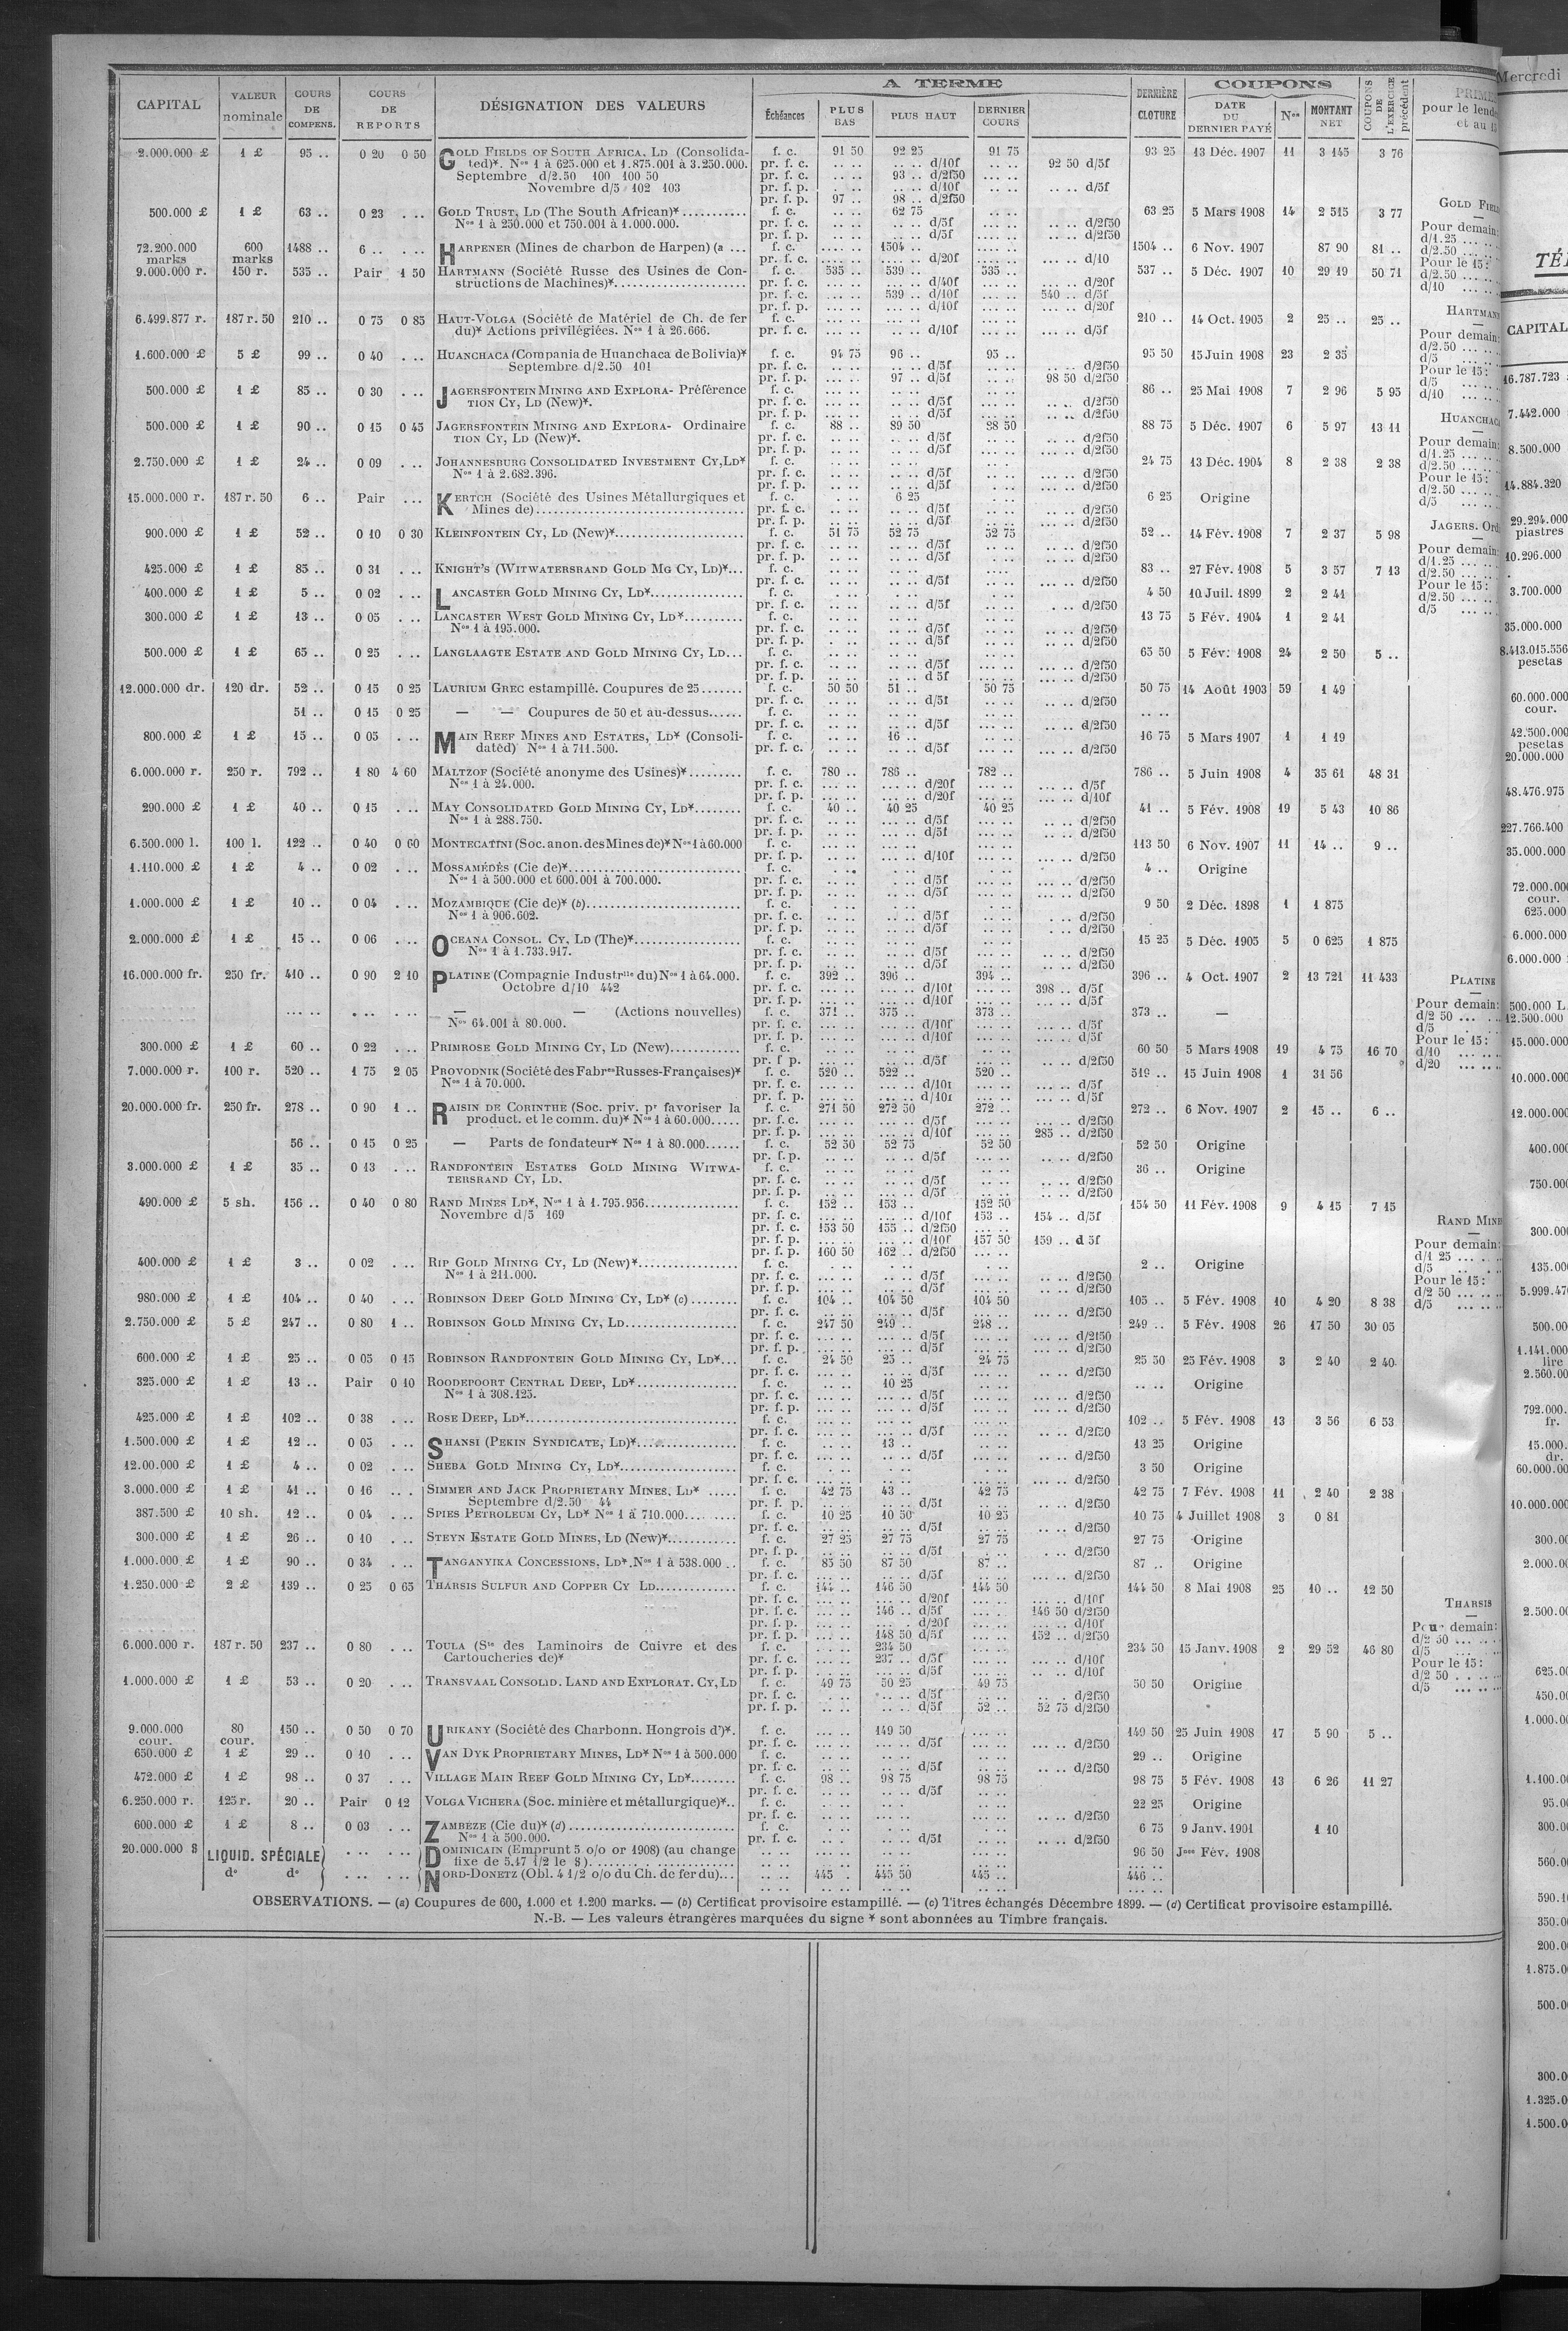 CAPITAL | VALEUR nominale | COURS DE COMPENS. | COURS DE REPORTS | DÉSIGNATION DES VALEURS | A TERME | DERNIÈRE CLOTURE | COUPONS | COUPONS DE L'EXERCICE précédent
Échéances | PLUS BAS | PLUS HAUT | DERNIER COURS | DATE DU DERNIER PAYÉ | Nos | MONTANT NET
2.000.000 £ 1 £ 95 .. 0 20 0 50 GOLD FIELDS OF SOUTH AFRICA, LD (Consolida- f. c. 91 50 92 25 91 75 93 25 13 Déc. 1907 11 3 145 3 76
ted)*. Nos 1 à 625.000 et 1.875.001 à 3.250.000. pr. f. c. .. .. .. .. d/10f .. .. 92 50 d/5f
Septembre d/2.50 100 100 50 pr. f. c. .. .. 93 .. d/2f50 ... ..
Novembre d/5 102 103 pr. f. p. .. .. d/10f .. .. .. .. d/5f
pr. f. p. 97 .. 98 .. d/2f50
500.000 £ 1 £ 63 .. 0 23 . .. GOLD TRUST, LD (The South African)* f. c. .. .. 62 75 .. .. 63 25 5 Mars 1908 14 2 515 3 77
Nos 1 à 250.000 et 750.001 à 1.000.000. pr. f. c. d/5f d/2f50
pr. f. p. d/5f d/2f50
72.200.000 marks 600 marks 1488 .. 6 .. . .. HARPENER (Mines de charbon de Harpen) (a ... f. c. 1504 .. 1504 .. 6 Nov. 1907 87 90 81 ..
pr. f. c. d/20f d/10
9.000.000 r. 150 r. 535 .. Pair 1 50 HARTMANN (Société Russe des Usines de Con- f. c. 535 .. 539 .. 535 .. 537 .. 5 Déc. 1907 10 29 19 50 71
structions de Machines)* pr. f. c. d/40f d/20f
pr. f. c. 539 .. d/10f 540 .. d/5f
pr. f. p. d/10f d/20f
6.499.877 r. 187 r. 50 210 .. 0 75 0 85 HAUT-VOLGA (Société de Matériel de Ch. de fer f. c. 210 .. 14 Oct. 1905 2 25 .. 25 ..
du)* Actions privilégiées. Nos 1 à 26.666. pr. f. c. d/10f d/5f
1.600.000 £ 5 £ 99 .. 0 40 . .. HUANCHACA (Compania de Huanchaca de Bolivia)* f. c. 94 75 96 .. 95 .. 95 50 15 Juin 1908 23 2 35
Septembre d/2.50 101 pr. f. c. d/5f d/2f50
pr. f. p. 97 .. d/5f 98 50 d/2f50
500.000 £ 1 £ 85 .. 0 30 . .. JAGERSFONTEIN MINING AND EXPLORA- Préférence f. c. 86 .. 25 Mai 1908 7 2 96 5 95
TION CY, LD (New)*. pr. f. c. d/5f d/2f50
pr. f. p. d/5f d/2f50
500.000 £ 1 £ 90 .. 0 15 0 45 JAGERSFONTEIN MINING AND EXPLORA- Ordinaire f. c. 88 .. 89 50 88 50 88 75 5 Déc. 1907 6 5 97 13 11
TION CY, LD (New)*. pr. f. c. d/5f d/2f50
pr. f. p. d/5f d/2f50
2.750.000 £ 1 £ 24 .. 0 09 . .. JOHANNESBURG CONSOLIDATED INVESTMENT CY, LD* f. c. 24 75 13 Déc. 1904 8 2 38 2 38
Nos 1 à 2.682.396. pr. f. c. d/5f d/2f50
pr. f. p. d/5f d/2f50
15.000.000 r. 187 r. 50 6 .. Pair . .. KERTCH (Société des Usines Métallurgiques et f. c. 6 25 6 25 Origine
Mines de) pr. f. c. d/5f d/2f50
pr. f. p. d/5f d/2f50
900.000 £ 1 £ 52 .. 0 10 0 30 KLEINFONTEIN CY, LD (New)* f. c. 51 75 52 75 52 75 52 .. 14 Fév. 1908 7 2 37 5 98
pr. f. c. d/5f d/2f50
pr. f. p. d/5f d/2f50
425.000 £ 1 £ 85 .. 0 31 . .. KNIGHT'S (WITWATERSRAND GOLD MG CY, LD)* f. c. 83 .. 27 Fév. 1908 5 3 57 7 13
pr. f. c. d/5f d/2f50
400.000 £ 1 £ 5 .. 0 02 . .. LANCASTER GOLD MINING CY, LD* f. c. 4 50 10 Juil. 1899 2 2 41
pr. f. c. d/5f d/2f50
300.000 £ 1 £ 13 .. 0 05 . .. LANCASTER WEST GOLD MINING CY, LD* f. c. 13 75 5 Fév. 1904 1 2 41
Nos 1 à 195.000. pr. f. c. d/5f d/2f50
pr. f. p. d/5f d/2f50
500.000 £ 1 £ 65 .. 0 25 . .. LANGLAAGTE ESTATE AND GOLD MINING CY, LD f. c. 65 50 5 Fév. 1908 24 2 50 5 ..
pr. f. c. d/5f d/2f50
pr. f. p. d 5f d/2f50
12.000.000 dr. 120 dr. 52 .. 0 15 0 25 LAURIUM GREC estampillé. Coupures de 25 f. c. 50 50 51 .. 50 75 50 75 14 Août 1903 59 1 49
pr. f. c. d/5f d/2f50
51 .. 0 15 0 25 — — Coupures de 50 et au-dessus f. c. .. ..
pr. f. c. d/5f d/2f50
800.000 £ 1 £ 15 .. 0 05 . .. MAIN REEF MINES AND ESTATES, LD* (Consoli- f. c. 16 .. 16 75 5 Mars 1907 1 1 19
dated) Nos 1 à 711.500. pr. f. c. d/5f d/2f50
6.000.000 r. 250 r. 792 .. 1 80 4 60 MALTZOF (Société anonyme des Usines)* f. c. 780 .. 786 .. 782 .. 786 .. 5 Juin 1908 4 35 61 48 31
Nos 1 à 24.000. pr. f. c. d/20f d/5f
pr. f. p. d/20f d/10f
290.000 £ 1 £ 40 .. 0 15 . .. MAY CONSOLIDATED GOLD MINING CY, LD* f. c. 40 .. 40 25 40 25 41 .. 5 Fév. 1908 19 5 43 10 86
Nos 1 à 288.750. pr. f. c. d/5f d/2f50
pr. f. p. d/5f d/2f50
6.500.000 l. 100 l. 122 .. 0 40 0 60 MONTECATINI (Soc. anon. des Mines de)* Nos 1 à 60.000 f. c. 113 50 6 Nov. 1907 11 14 .. 9 ..
pr. f. p. d/10f d/2f50
1.110.000 £ 1 £ 4 .. 0 02 . .. MOSSAMÉDÈS (Cie de)* f. c. 4 .. Origine
Nos 1 à 500.000 et 600.001 à 700.000. pr. f. c. d/5f d/2f50
pr. f. p. d/5f d/2f50
1.000.000 £ 1 £ 10 .. 0 04 . .. MOZAMBIQUE (Cie de)* (b) f. c. 9 50 2 Déc. 1898 1 1 875
Nos 1 à 906.602. pr. f. c. d/5f d/2f50
pr. f. p. d/5f d/2f50
2.000.000 £ 1 £ 15 .. 0 06 . .. OCEANA CONSOL. CY, LD (The)* f. c. 15 25 5 Déc. 1905 5 0 625 1 875
Nos 1 à 1.733.917. pr. f. c. d/5f d/2f50
pr. f. p. d/5f d/2f50
16.000.000 fr. 250 fr. 410 .. 0 90 2 10 PLATINE (Compagnie Industrlle du) Nos 1 à 64.000. f. c. 392 .. 396 .. 394 .. 396 .. 4 Oct. 1907 2 13 721 11 433
Octobre d/10 442 pr. f. c. d/10f 398 .. d/5f
pr. f. p. d/10f d/5f
— — (Actions nouvelles) f. c. 371 .. 375 .. 373 .. 373 .. —
Nos 64.001 à 80.000. pr. f. c. d/10f d/5f
pr. f. p. d/10f d/5f
300.000 £ 1 £ 60 .. 0 22 . .. PRIMROSE GOLD MINING CY, LD (New) f. c. 60 50 5 Mars 1908 19 4 75 16 70
pr. f p. d/5f d/2f50
7.000.000 r. 100 r. 520 .. 1 75 2 05 PROVODNIK (Société des Fabres Russes-Françaises)* f. c. 520 .. 522 .. 520 .. 519 .. 15 Juin 1908 1 31 56
Nos 1 à 70.000. pr. f. c. d/10f d/5f
pr. f. p. d/10f d/5f
20.000.000 fr. 250 fr. 278 .. 0 90 1 .. RAISIN DE CORINTHE (Soc. priv. pr favoriser la f. c. 271 50 272 50 272 .. 272 .. 6 Nov. 1907 2 15 .. 6 ..
product. et le comm. du)* Nos 1 à 60.000 pr. f. c. d/5f d/2f50
pr. f. p. d/10f 285 .. d/2f50
56 .. 0 15 0 25 — Parts de fondateur* Nos 1 à 80.000 f. c. 52 50 52 75 52 50 52 50 Origine
pr. f. p. d/5f d/2f50
3.000.000 £ 1 £ 35 .. 0 13 . .. RANDFONTEIN ESTATES GOLD MINING WITWA- f. c. 36 .. Origine
TERSRAND CY, LD. pr. f. c. d/5f d/2f50
pr. f. p. d/5f d/2f50
490.000 £ 5 sh. 156 .. 0 40 0 80 RAND MINES LD*, Nos 1 à 1.795.956 f. c. 152 .. 153 .. 152 50 154 50 11 Fév. 1908 9 4 15 7 15
Novembre d/5 169 pr. f. c. d/10f 153 .. 154 .. d/5f
pr. f. c. 153 50 155 .. d/2f50
pr. f. p. d/10f 157 50 159 .. d 5f
pr. f. p. 160 50 162 .. d/2f50
400.000 £ 1 £ 3 .. 0 02 . .. RIP GOLD MINING CY, LD (New)* f. c. 2 .. Origine
Nos 1 à 211.000. pr. f. c. d/5f d/2f50
pr. f. p. d/5f d/2f50
980.000 £ 1 £ 104 .. 0 40 . .. ROBINSON DEEP GOLD MINING CY, LD* (c) f. c. 104 .. 104 50 104 50 105 .. 5 Fév. 1908 10 4 20 8 38
pr. f. c. d/5f d/2f50
2.750.000 £ 5 £ 247 .. 0 80 1 .. ROBINSON GOLD MINING CY, LD f. c. 247 50 249 .. 248 .. 249 .. 5 Fév. 1908 26 17 50 30 05
pr. f. c. d/5f d/2f50
pr. f. p. d/5f d/2f50
600.000 £ 1 £ 25 .. 0 05 0 15 ROBINSON RANDFONTEIN GOLD MINING CY, LD* f. c. 24 50 25 .. 24 75 25 50 25 Fév. 1908 3 2 40 2 40
pr. f. c. d/5f d/2f50
325.000 £ 1 £ 13 .. Pair 0 10 ROODEPOORT CENTRAL DEEP, LD* f. c. 10 25 .. .. Origine
Nos 1 à 308.125. pr. f. c. d/5f d/2f50
pr. f. p. d/5f d/2f50
425.000 £ 1 £ 102 .. 0 38 . .. ROSE DEEP, LD* f. c. 102 .. 5 Fév. 1908 13 3 56 6 53
pr. f. c. d/5f d/2f50
1.500.000 £ 1 £ 12 .. 0 05 . .. SHANSI (PEKIN SYNDICATE, LD)* f. c. 13 .. 13 25 Origine
pr. f. c. d/5f d/2f50
12.00.000 £ 1 £ 4 .. 0 02 . .. SHEBA GOLD MINING CY, LD* f. c. 3 50 Origine
pr. f. c. d/2f50
3.000.000 £ 1 £ 41 .. 0 16 .. . SIMMER AND JACK PROPRIETARY MINES, LD* f. c. 42 75 43 .. 42 75 42 75 7 Fév. 1908 11 2 40 2 38
Septembre d/2.50 44 pr. f. p. d/5f d/2f50
387.500 £ 10 sh. 12 .. 0 04 . .. SPIES PETROLEUM CY, LD* Nos 1 à 710.000 f. c. 10 25 10 50 10 25 10 75 4 Juillet 1908 3 0 81
pr. f. c. d/5f d/2f50
300.000 £ 1 £ 26 .. 0 10 . .. STEYN ESTATE GOLD MINES, LD (New)* f. c. 27 25 27 75 27 75 27 75 Origine
pr. f. p. d/5f d/2f50
1.000.000 £ 1 £ 90 .. 0 34 . .. TANGANYIKA CONCESSIONS, LD*. Nos 1 à 538.000 f. c. 85 50 87 50 87 .. 87 .. Origine
pr. f. c. d/5f d/2f50
1.250.000 £ 2 £ 139 .. 0 25 0 65 THARSIS SULFUR AND COPPER CY LD f. c. 144 .. 146 50 144 50 144 50 8 Mai 1908 25 10 .. 12 50
pr. f. c. d/20f d/10f
pr. f. c. 146 .. d/5f 146 50 d/2f50
pr. f. p. d/20f d/10f
pr. f. p. 148 50 d/5f 152 .. d/2f50
6.000.000 r. 187 r. 50 237 .. 0 80 . .. TOULA (Sté des Laminoirs de Cuivre et des f. c. 234 50 234 50 15 Janv. 1908 2 29 52 46 80
Cartoucheries de)* pr. f. c. 237 .. d/5f d/10f
pr. f. p. d/5f d/10f
1.000.000 £ 1 £ 53 .. 0 20 . .. TRANSVAAL CONSOLID. LAND AND EXPLORAT. CY, LD f. c. 49 75 50 25 49 75 50 50 Origine
pr. f. c. d/5f d/2f50
pr. f. p. d/5f 52 .. 52 75 d/2f50
9.000.000 cour. 80 cour. 150 .. 0 50 0 70 URIKANY (Société des Charbonn. Hongrois d')*. f. c. 149 50 149 50 25 Juin 1908 17 5 90 5 ..
pr. f. c. d/5f d/2f50
650.000 £ 1 £ 29 .. 0 10 . .. VAN DYK PROPRIETARY MINES, LD* Nos 1 à 500.000 f. c. 29 .. Origine
pr. f. c. d/5f d/2f50
472.000 £ 1 £ 98 .. 0 37 . .. VILLAGE MAIN REEF GOLD MINING CY, LD* f. c. 98 .. 98 75 98 75 98 75 5 Fév. 1908 13 6 26 11 27
pr. f. c. d/5f
6.250.000 r. 125 r. 20 .. Pair 0 12 VOLGA VICHERA (Soc. minière et métallurgique)* f. c. 22 25 Origine
pr. f. c. d/2f50
600.000 £ 1 £ 8 .. 0 03 . .. ZAMBEZE (Cie du)* (d) f. c. 6 75 9 Janv. 1901 1 10
Nos 1 à 500.000. pr. f. c. d/5f d/2f50
20.000.000 $ LIQUID. SPÉCIALE DOMINICAIN (Emprunt 5 o/o or 1908) (au change 96 50 Jce Fév. 1908
fixe de 5.17 1/2 le $)
do do NORD-DONETZ (Obl. 4 1/2 o/o du Ch. de fer du) 445 . 445 50 445 .. 446 ..
OBSERVATIONS. — (a) Coupures de 600, 1.000 et 1.200 marks. — (b) Certificat provisoire estampillé. — (c) Titres échangés Décembre 1899. — (d) Certificat provisoire estampillé.
N.-B. — Les valeurs étrangères marquées du signe * sont abonnées au Timbre français.
pour le
et au
GOLD
Pour demain:
d/1.25
d/2.50
Pour le 15:
d/2.50
d/10
HARTMANN
Pour demain:
d/2.50
d/5
Pour le 15:
d/5
d/10
Pour demain:
d/1.25
d/2.50
Pour le 15:
d/2.50
d/5
JAGERS.
Pour demain:
d/1.25
d/2.50
Pour le 15:
d/2.50
d/5
PLATINE
Pour demain:
d/2 50
d/5
Pour le 15:
d/10
d/20
RAND
Pour demain:
d/1 25
d/5
Pour le 15:
d/2 50
d/5
THARSIS
Pour demain:
d/2 50
d/5
Pour le 15:
d/2 50
d/5
Mercredi
CAPITAL
16.787.723
7.442.000
8.500.000
14.884.320
29.294.000
piastres
10.296.000
3.700.000
35.000.000
8.413.015.556
pesetas
60.000.000
cour.
42.500.000
pesetas
20.000.000
48.476.975
227.766.400
35.000.000
72.000.00
cour.
625.000
6.000.000
6.000.000
500.000 L
12.500.000
15.000.000
10.000.000
12.000.000